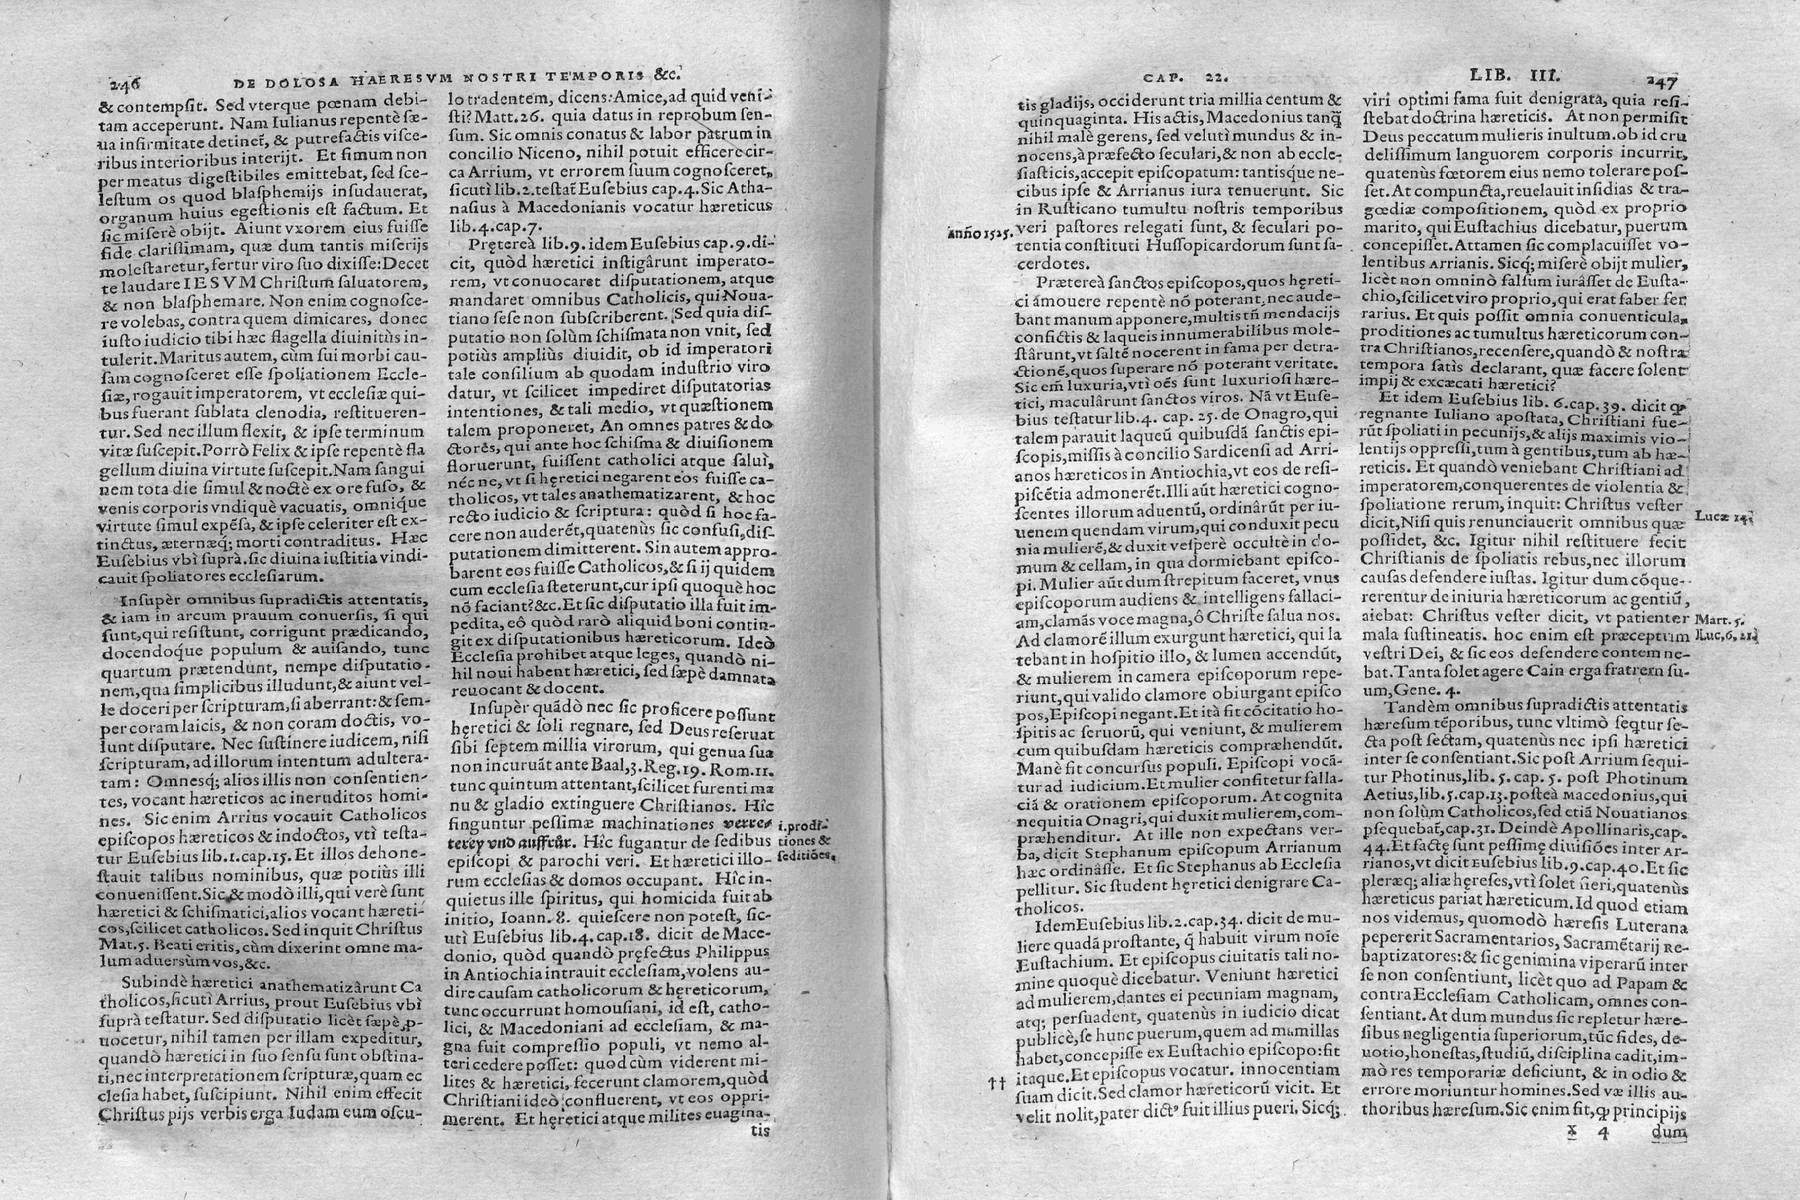 246
DE DOLOSA HAERESVM NOSTRI TEMPORIS &c.
& contempsit. Sed vterque pœnam debi-
tam acceperunt. Nam Iulianus repentè sæ-
ua infirmitate detinet̃, & putrefactis visce-
ribus interioribus interijt. Et fimum non
per meatus digestibiles emittebat, sed sce-
lestum os quod blasphemijs insudauerat,
organum huius egestionis est factum. Et
sic miserè obijt. Aiunt vxorem eius fuisse
fide clarissimam, quæ dum tantis miserijs
molestaretur, fertur viro suo dixisse: Decet
te laudare IESVM Christum saluatorem,
& non blasphemare. Non enim cognosce-
re volebas, contra quem dimicares, donec
iusto iudicio tibi hæc flagella diuinitùs in-
tulerit. Maritus autem, cùm sui morbi cau-
sam cognosceret esse spoliationem Eccle-
siæ, rogauit imperatorem, vt ecclesiæ qui-
bus fuerant sublata clenodia, restitueren-
tur. Sed nec illum flexit, & ipse terminum
vitæ suscepit. Porrò Felix & ipse repentè fla
gellum diuina virtute suscepit. Nam sangui
nem tota die simul & noctè ex ore fuso, &
venis corporis vndiquè vacuatis, omnique
virtute simul expẽsa, & ipse celeriter est ex-
tinctus, æternæq; morti contraditus. Hæc
Eusebius vbì suprà. sic diuina iustitia vindi-
cauit spoliatores ecclesiarum.
Insupèr omnibus supradictis attentatis,
& iam in arcum prauum conuersis, si qui
sunt, qui resistunt, corrigunt prædicando,
docendoque populum & auisando, tunc
quartum prætendunt, nempe disputatio-
nem, qua simplicibus illudunt, & aiunt vel-
le doceri per scripturam, si aberrant: & sem-
per coram laicis, & non coram doctis, vo-
lunt disputare. Nec sustinere iudicem, nisi
scripturam, ad illorum intentum adultera-
tam: Omnesq; alios illis non consentien-
tes, vocant hæreticos ac ineruditos homi-
nes. Sic enim Arrius vocauit Catholicos
episcopos hæreticos & indoctos, vtì testa-
tur Eusebius lib. 1. cap. 15. Et illos dehone-
stauit talibus nominibus, quæ potiùs illi
conuenissent. Sic & modò illi, qui verè sunt
hæretici & schismatici, alios vocant hæreti-
cos, scilicet catholicos. Sed inquit Christus
Mat. 5. Beati eritis, cùm dixerint omne ma-
lum aduersùm vos, &c.
Subindè hæretici anathematizârunt Ca
tholicos, sicutì Arrius, prout Eusebius vbì
suprà testatur. Sed disputatio licèt sæpè p-
uocetur, nihil tamen per illam expeditur,
quandò hæretici in suo sensu sunt obstina-
ti, nec interpretationem scripturæ, quam ec
clesia habet, suscipiunt. Nihil enim effecit
Christus pijs verbis erga Iudam eum oscu-
lo tradentem, dicens: Amice, ad quid veni-
sti? Matt. 26. quia datus in reprobum sen-
sum. Sic omnis conatus & labor patrum in
concilio Niceno, nihil potuit efficere cir-
ca Arrium, vt errorem suum cognosceret,
sicutì lib. 2. testat̃ Eusebius cap. 4. Sic Atha-
nasius à Macedonianis vocatur hæreticus
lib. 4. cap. 7.
Prętereà lib. 9. idem Eusebius cap. 9. di-
cit, quòd hæretici instigârunt imperato-
rem, vt conuocaret disputationem, atque
mandaret omnibus Catholicis, qui Noua-
tiano sese non subscriberent. Sed quia dis-
putatio non solùm schismata non vnit, sed
potiùs ampliùs diuidit, ob id imperatori
tale consilium ab quodam industrio viro
datur, vt scilicet impediret disputatorias
intentiones, & tali medio, vt quæstionem
talem proponeret, An omnes patres & do
ctores, qui ante hoc schisma & diuisionem
floruerunt, fuissent catholici atque salui,
néc ne, vt si hęretici negarent eos fuisse ca-
tholicos, vt tales anathematizarent, & hoc
recto iudicio & scriptura: quòd si hoc fa-
cere non auderẽt, quatenùs sic confusi, dis-
putationem dimitterent. Sin autem appro-
barent eos fuisse Catholicos, & si ij quidem
cum ecclesia steterunt, cur ipsi quoquè hoc
nõ faciant? &c. Et sic disputatio illa fuit im-
pedita, eò quòd rarò aliquid boni contin-
git ex disputationibus hæreticorum. Ideò
Ecclesia prohibet atque leges, quandò ni-
hil noui habent hæretici, sed sæpè damnata
reuocant & docent.
Insupèr quãdò nec sic proficere possunt
hęretici & soli regnare, sed Deus reseruat
sibi septem millia virorum, qui genua sua
non incuruãt ante Baal, 3. Reg. 19. Rom. 11.
tunc quintum attentant, scilicet furenti ma
nu & gladio extinguere Christianos. Hîc
finguntur pessimæ machinationes verres
terey vnd auffrůr. Hîc fugantur de sedibus
episcopi & parochi veri. Et hæretici illo-
rum ecclesias & domos occupant. Hîc in-
quietus ille spiritus, qui homicida fuit ab
initio, Ioann. 8. quiescere non potest, sic-
utì Eusebius lib. 4. cap. 18. dicit de Mace-
donio, quòd quandò pręfectus Philippus
in Antiochia intrauit ecclesiam, volens au-
dire causam catholicorum & hęreticorum,
tunc occurrunt homousiani, id est, catho-
lici, & Macedoniani ad ecclesiam, & ma-
gna fuit compressio populi, vt nemo al-
teri cedere posset: quod cùm viderent mi-
lites & hæretici, fecerunt clamorem, quòd
Christiani ideò confluerent, vt eos oppri-
merent. Et hęretici atque milites euagina-
tis
i. prodi-
tiones &
seditiões.
CAP. 22.
LIB. III.
247
tis gladijs, occiderunt tria millia centum &
quinquaginta. His actis, Macedonius tanq̃
nihil malè gerens, sed velutì mundus & in-
nocens, à præfecto seculari, & non ab eccle-
siasticis, accepit episcopatum: tantisque ne-
cibus ipse & Arrianus iura tenuerunt. Sic
in Rusticano tumultu nostris temporibus
veri pastores relegati sunt, & seculari po-
tentia constituti Hussopicardorum sunt sa-
cerdotes.
Anño 1525.
Prætereà sanctos episcopos, quos hęreti-
ci amouere repentè nõ poterant, nec aude-
bant manum apponere, multis tñ mendacijs
confictis & laqueis innumerabilibus mole-
stârunt, vt saltẽ nocerent in fama per detra-
ctionẽ, quos superare nõ poterant veritate.
Sic em̃ luxuria, vtì oẽs sunt luxuriosi hære-
tici, maculârunt sanctos viros. Nã vt Euse-
bius testatur lib. 4. cap. 25. de Onagro, qui
talem parauit laqueũ quibusdã sanctis epi-
scopis, missis à concilio Sardicensi ad Arri-
anos hæreticos in Antiochia, vt eos de resi-
piscẽtia admonerẽt. Illi aũt hæretici cogno-
scentes illorum aduentũ, ordinârũt per iu-
uenem quendam virum, qui conduxit pecu
nia mulierẽ, & duxit vesperè occultè in do-
mum & cellam, in qua dormiebant episco-
pi. Mulier aũt dum strepitum faceret, vnus
episcoporum audiens & intelligens fallaci-
am, clamás voce magna, ô Christe salua nos.
Ad clamorẽ illum exurgunt hæretici, qui la
tebant in hospitio illo, & lumen accendũt,
& mulierem in camera episcoporum repe-
riunt, qui valido clamore obiurgant episco
pos, Episcopi negant. Et ità fit cõcitatio ho-
spitis ac seruorũ, qui veniunt, & mulierem
cum quibusdam hæreticis compræhendũt.
Manè fit concursus populi. Episcopi vocã-
tur ad iudicium. Et mulier confitetur falla-
ciã & orationem episcoporum. At cognita
nequitia Onagri, qui duxit mulierem, com-
præhenditur. At ille non expectans ver-
ba, dicit Stephanum episcopum Arrianum
hæc ordinâsse. Et sic Stephanus ab Ecclesia
pellitur. Sic student hęretici denigrare Ca-
tholicos.
Idem Eusebius lib. 2. cap. 34. dicit de mu-
liere quadã prostante, q̃ habuit virum noĩe
Eustachium. Et episcopus ciuitatis tali no-
mine quoquè dicebatur. Veniunt hæretici
ad mulierem, dantes ei pecuniam magnam,
atq; persuadent, quatenùs in iudicio dicat
publicè, se hunc puerum, quem ad mamillas
habet, concepisse ex Eustachio episcopo: fit
itaque. Et episcopus vocatur. innocentiam
suam dicit. Sed clamor hæreticorũ vicit. Et
velit nolit, pater dict’ fuit illius pueri. Sicq;
††
viri optimi fama fuit denigrata, quia resi-
stebat doctrina hæreticis. At non permisit
Deus peccatum mulieris inultum. ob id cru
delissimum languorem corporis incurrit,
quatenùs fœtorem eius nemo tolerare pos-
set. At compuncta, reuelauit insidias & tra-
gœdiæ compositionem, quòd ex proprio
marito, qui Eustachius dicebatur, puerum
concepisset. Attamen sic complacuisset vo-
lentibus Arrianis. Sicq; miserè obijt mulier,
licèt non omninò falsum iurâsset de Eusta-
chio, scilicet viro proprio, qui erat faber fer
rarius. Et quis possit omnia conuenticula,
proditiones ac tumultus hæreticorum con-
tra Christianos, recensere, quandò & nostra
tempora satìs declarant, quæ facere solent
impij & excæcati hæretici?
Et idem Eusebius lib. 6. cap. 39. dicit ꝙ
regnante Iuliano apostata, Christiani fue-
rũt spoliati in pecunijs, & alijs maximis vio-
lentijs oppressi, tum à gentibus, tum ab hæ-
reticis. Et quandò veniebant Christiani ad
imperatorem, conquerentes de violentia &
spoliatione rerum, inquit: Christus vester
dicit, Nisi quis renunciauerit omnibus quæ
possidet, &c. Igitur nihil restituere fecit
Christianis de spoliatis rebus, nec illorum
causas defendere iustas. Igitur dum cõque-
rerentur de iniuria hæreticorum ac gentiũ,
aiebat: Christus vester dicit, vt patienter
mala sustineatis. hoc enim est præceptum
vestri Dei, & sic eos defendere contemne-
bat. Tanta solet agere Cain erga fratrem su-
um, Gene. 4.
Lucæ 14.
Mart. 5.
Luc, 6, 21.
Tandèm omnibus supradictis attentatis
hæresum tẽporibus, tunc vltimò seq̃tur se-
cta post sectam, quatenùs nec ipsi hæretici
inter se consentiant. Sic post Arrium sequi-
tur Photinus, lib. 5. cap. 5. post Photinum
Aetius, lib. 5. cap. 13. posteà Macedonius, qui
non solùm Catholicos, sed etiã Nouatianos
psequebat̃, cap. 31. Deindè Apollinaris, cap.
44. Et factę sunt pessimę diuisiões inter Ar-
rianos, vt dicit Eusebius lib. 9. cap. 40. Et sic
pleræq; aliæ hęreses, vtì solet fieri, quatenùs
hæreticus pariat hæreticum. Id quod etiam
nos videmus, quomodò hæresis Luterana
pepererit Sacramentarios, Sacramẽtarij Re-
baptizatores: & sic genimina viperarũ inter
se non consentiunt, licèt quo ad Papam &
contra Ecclesiam Catholicam, omnes con-
sentiant. At dum mundus sic repletur hære-
sibus negligentia superiorum, tũc fides, de-
uotio, honestas, studiũ, disciplina cadit, im-
mò res temporariæ deficiunt, & in odio &
errore moriuntur homines. Sed væ illis au-
thoribus hæresum. Sic enim fit, ꝙ principijs
X 4
dum